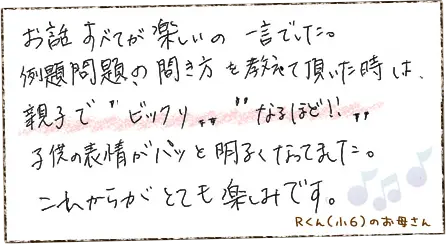 お話すべてが楽しいの一言でした。
例題問題、の聞き方を教えて頂いた時は、
親子で"ビックリ"なるほど!!"
子供の表情がパッと明るくなってました。
これからがとても楽しみです。
Rくん(小6)のお母さん